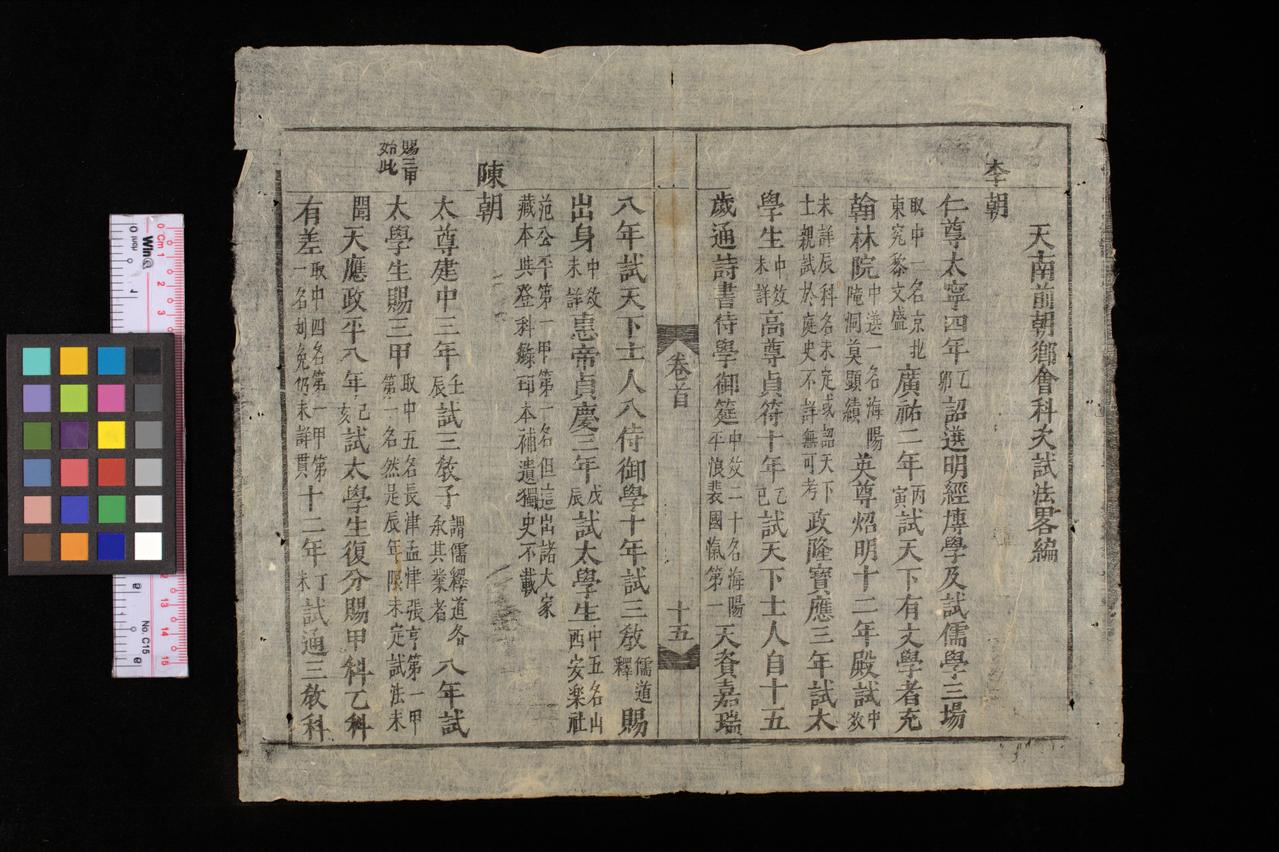 天南前朝鄉會科次試法畧編
李朝
仁尊太寧四年乙卯詔選明經博學及試儒學三場
取中一名京北東究黎文盛廣祐二年丙寅試天下有文學者充
翰林院中選一名海陽庵洞莫顯績英尊炤明十二年殿試中数
未詳辰科名未定或詔天下士親試於庭史不詳無可考政隆寶應三年試太
學生中数未詳高尊貞符十年乙巳試天下士人自十五
歲通詩書侍學御筵中数二十名海陽平浪裴國愾第一天資嘉瑞
卷首
十五
八年試天下士人入侍御學十年試三教儒道釋賜
出身中数未詳惠帝貞慶三年戊辰試太學生中五名山西安楽社
范公平第一甲第一名但這出諸大家藏本與登科錄印本補遺獨史不載
陳朝
太尊建中三年壬辰試三教子謂儒釋道各承其業者八年試
賜三甲始此
太學生賜三甲取中五名長津張亨第一甲第一名然是辰年限未定試法未
閏天應政平八年己亥試太學生復分賜甲科乙科
有差取中四名第一甲第一名刘免仍未詳貫十二年丁未試通三教科